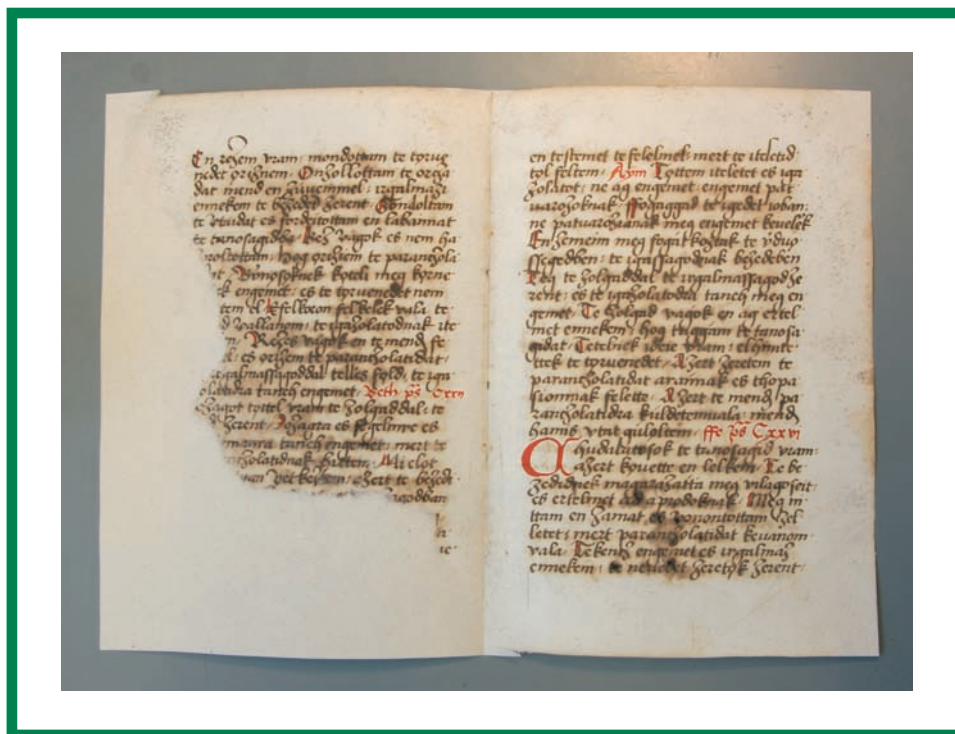 En rezem vram· mondottam te torue
nedet orihnem· Onhollottam te orcha
dat mend en ziuemmel· irgalmaz
ennekem te bezeded zerent· Gondoltam
te vtaidat es fordeitottam en labaimat
te tanosagidba Kez vagok es nem ha
hog orihiem te parancholа
Bynosoknek koteli meg korne
engemet· es te toruenedet nem
el Eyfelkoron felkelek vala te
vallanom· te igazolatodnak ite
Rezes vagok en te mend fe
es orihem te parancholatidat·
irgalmassagoddal telles fold· te iga
engemet· Teth ps Cxxv
tottel vram te zolgaddal· te
zerent· Iozagra es fegelmre es
tanch engemet· mert te
hittem· Mi elot
azert te bezed
en testemet te felelmek· mert te iteletid
tol feltem· Ayn Tottem iteletet es iga
zolatot· ne ag engemet engemet pat
uarzoknak· Fogaggad te zgedet ioban·
ne patuarzianak meg engemet keuelek
En zemeim meg fogatkoztak te vduo
ssegedben· te igassagodnak bezedeben
Teg te zolgaddal te irgalmassagod ze
rent· es te igazolatodra tanch meg en
gemet· Te zolgad vagok en ag ertel
met ennekem· hog tuggam te tanosa
gidat· Tetelnek ideie vram· elhinte
ttek te toruenedet· Azert zeretem te
parancholatidat arannak es thopa
sionnak felette· Azert te mend pa
rancholatidra kuldetemuala· mend
hamis vtat gulöltem· ffe ps Cxxvi
Chudalatosok te tanosagid vram·
azert kouette en lelkem· Te be
zedidnek magarazatta meg vilagoseit
es ertelmet ad aprodoknak· Meg ni
ttam en zamat es vonontottam zel
letet· mert parancholatidat keuanom
vala· Tekench engemet es irgalmaz
ennekem· te neuedet zeretok zerent·